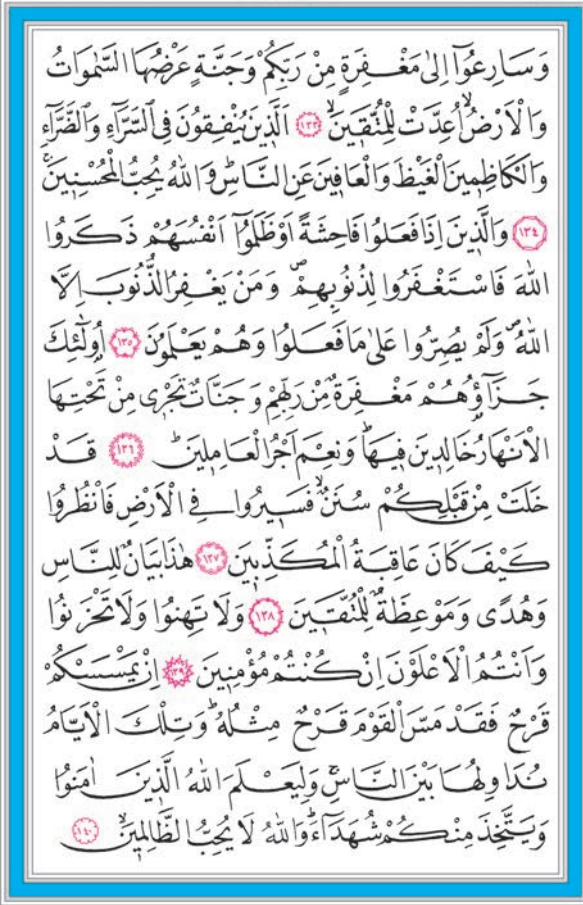 وَسَارِعُٓوا اِلٰى مَغْفِرَةٍ مِنْ رَبِّكُمْ وَجَنَّةٍ عَرْضُهَا السَّمٰوَاتُ
وَالْاَرْضُۙ اُعِدَّتْ لِلْمُتَّقٖينَۙ ﴿١٣٣﴾ اَلَّذٖينَ يُنْفِقُونَ فِى السَّرَّٓاءِ وَالضَّرَّٓاءِ
وَالْكَاظِمٖينَ الْغَيْظَ وَالْعَافٖينَ عَنِ النَّاسِؕ وَاللّٰهُ يُحِبُّ الْمُحْسِنٖينَۚ
﴿١٣٤﴾ وَالَّذٖينَ اِذَا فَعَلُوا فَاحِشَةً اَوْ ظَلَمُٓوا اَنْفُسَهُمْ ذَكَرُوا
اللّٰهَ فَاسْتَغْفَرُوا لِذُنُوبِهِمْࣕ وَمَنْ يَغْفِرُ الذُّنُوبَ اِلَّا
اللّٰهُࣕ وَلَمْ يُصِرُّوا عَلٰى مَا فَعَلُوا وَهُمْ يَعْلَمُونَ ﴿١٣٥﴾ اُولٰٓئِكَ
جَزَٓاؤُ۬هُمْ مَغْفِرَةٌ مِنْ رَبِّهِمْ وَجَنَّاتٌ تَجْرٖى مِنْ تَحْتِهَا
الْاَنْهَارُ خَالِدٖينَ فٖيهَاؕ وَنِعْمَ اَجْرُ الْعَامِلٖينَؕ ﴿١٣٦﴾ قَدْ
خَلَتْ مِنْ قَبْلِكُمْ سُنَنٌۙ فَسٖيرُوا فِي الْاَرْضِ فَانْظُرُوا
كَيْفَ كَانَ عَاقِبَةُ الْمُكَذِّبٖينَ ﴿١٣٧﴾ هٰذَا بَيَانٌ لِلنَّاسِ
وَهُدًى وَمَوْعِظَةٌ لِلْمُتَّقٖينَ ﴿١٣٨﴾ وَلَا تَهِنُوا وَلَا تَحْزَنُوا
وَاَنْتُمُ الْاَعْلَوْنَ اِنْ كُنْتُمْ مُؤْمِنٖينَ ﴿١٣٩﴾ اِنْ يَمْسَسْكُمْ
قَرْحٌ فَقَدْ مَسَّ الْقَوْمَ قَرْحٌ مِثْلُهُؕ وَتِلْكَ الْاَيَّامُ
نُدَاوِلُهَا بَيْنَ النَّاسِۚ وَلِيَعْلَمَ اللّٰهُ الَّذٖينَ اٰمَنُوا
وَيَتَّخِذَ مِنْكُمْ شُهَدَٓاءَؕ وَاللّٰهُ لَا يُحِبُّ الظَّالِمٖينَۙ ﴿١٤٠﴾